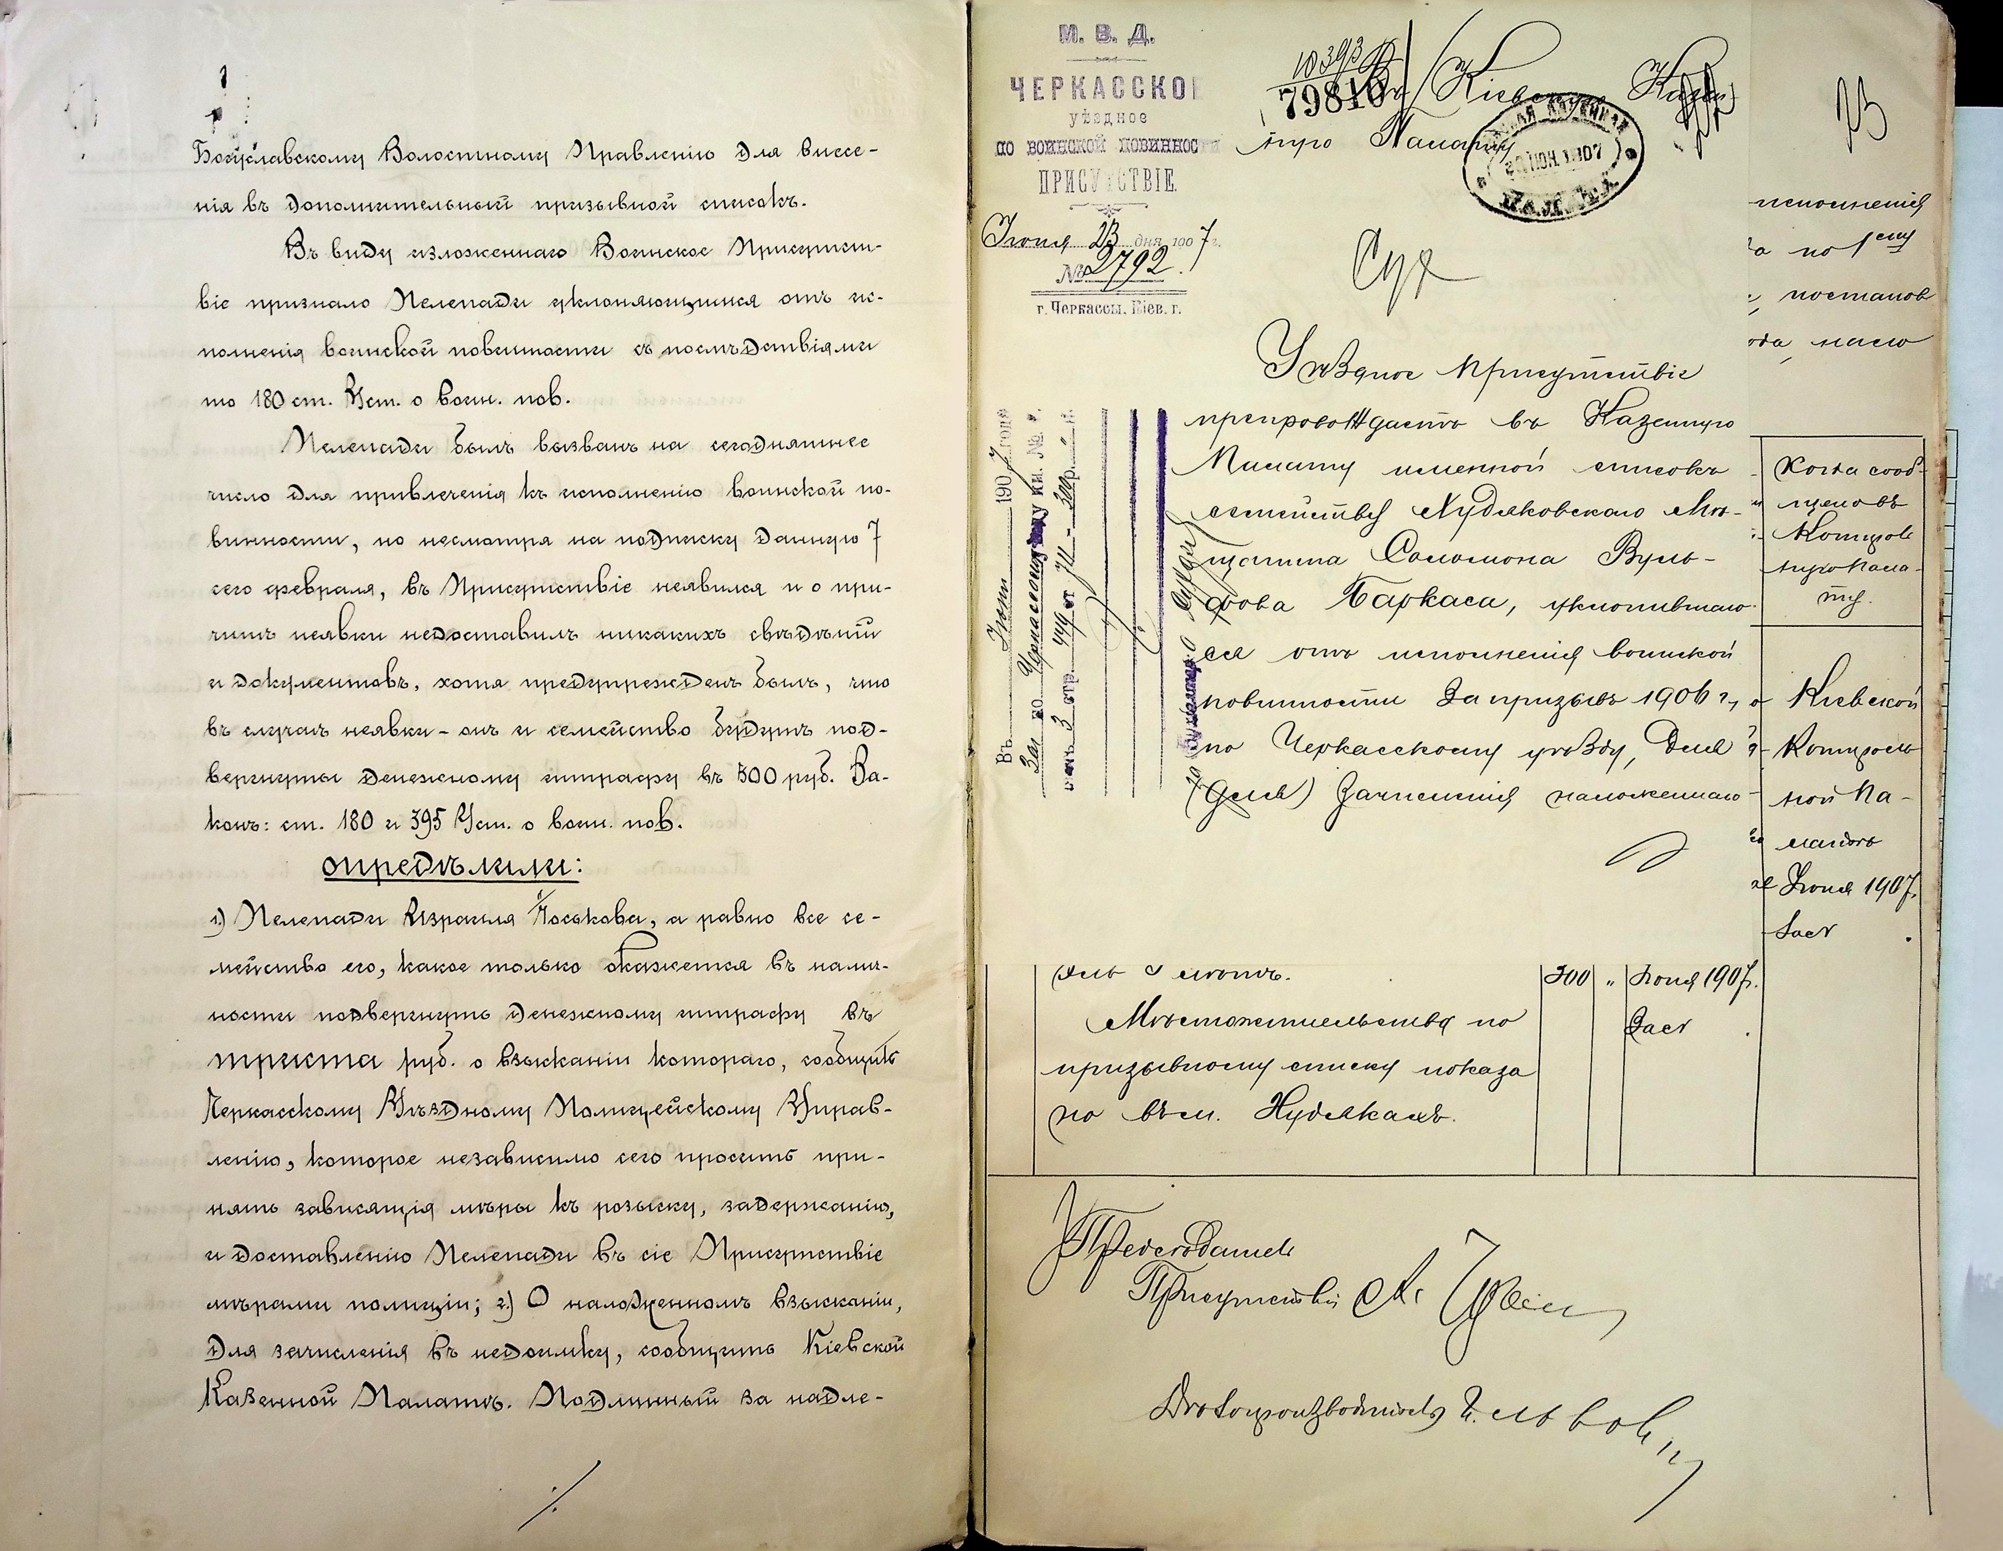 Богуславскому Волостному Правленію для внесе-
нія въ дополнительный призывной списокъ.
Въ виду изложеннаго Воинское Присутст-
віе признало Пелепади уклоняющимся отъ ис-
полненія воинской повинности съ послѣдствіями
по 180 ст. Уст. о воин. пов.
Пелепади былъ вызванъ на сегодняшнее
число для привлеченія къ исполненію воинской по-
винности, но несмотря на подписку данную 7
сего февраля, въ Присутствіе неявился и о при-
чинѣ неявки недоставилъ никакихъ свѣдѣній
и документовъ, хотя предупрежденъ былъ, что
въ случаѣ неявки - онъ и семейство будутъ под-
вергнуты денежному штрафу въ 300 руб. За-
конъ: ст. 180 и 395 Уст. о воин. пов.
опредѣлили:
1.) Пелепади Израиля Іоськова, а равно все се-
мейство его, какое только окажется въ налич-
ности подвергнуть денежному штрафу въ
триста руб. о взысканіи котораго, сообщить
Черкасскому Уѣздному Полицейскому Управ-
ленію, которое независимо сего просить при-
нять зависящія мѣры къ розыску, задержанію,
и доставленію Пелепади въ сіе Присутствіе
мѣрами полиціи; 2.) О наложенномъ взысканіи,
для зачисленія въ недоимку, сообщить Кіевской
Казенной Палатѣ. Подлинный за надле-
М. В. Д.
ЧЕРКАССКОЕ
уѣздное
по воинской повинности
ПРИСУТСТВІЕ.
Іюня 23 дня 1907 г.
№ 2792.
г. Черкассы, Кіев. г.
79810
Въ Кіевскую Казен
ную Палату
73
Уѣздное Присутствіе
препровождаетъ въ Казенную
Палату именной списокъ
семейства Худяковскаго Мѣ-
щанина Соломона Вуль-
фова Баркаса, уклонившаго
ся отъ исполненія воинской
повинности за призывъ 1906 г.,
по Черкасскому уѣзду, для
(для) зачисленія наложеннаго
исполненія
по 1ему
постанов
Когда сооб-
щено въ
Контроль
ную Пала-
ту.
Кіевской
Контроль
ной Па-
латѣ
Іюня 1907.
300 " Іюня 1907.
Мѣстожительства по
призывному списку показа
но въ м. Худякахъ.
Предсѣдатель
Присутствія
Дѣлопроизводитель